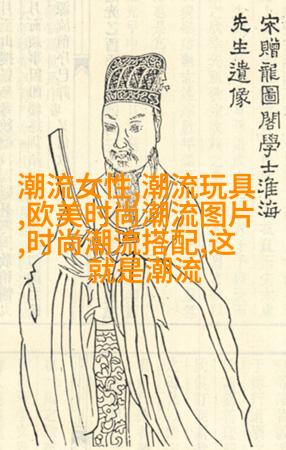 宋贈龍圖閣學士淮海
先生遺像
潮流女性,潮流玩具
,欧美时尚潮流图片
,时尚潮流搭配,这
就是潮流